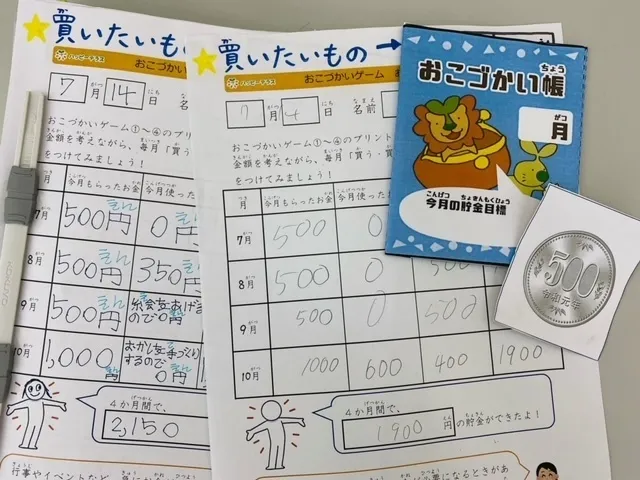 買いたいもの
ハッピーテラス
おこづかい
7月14日
おこづかいゲーム①～④のプリント
金額を考えながら、毎月「買う・
をつけてみましょう!
月 今月もらったお金 今月使っ
7月 500円 0円
8月 500円 350円
9月 500円
ので0円
10月 1,000円 おかしを手づくり
するので
0円
4か月間で、
2,150
行事やイベントなど
買いたいもの→
ハッピーテラス
おこづかいゲーム
7月4日 名前
おこづかいゲーム①～④のプリント
金額を考えながら、毎月「買う・
をつけてみましょう!
月 今月もらったお金 今月使った
7月 500 0
8月 500 0
9月 500 0 500
10月 1000 600 400 1900
4か月間で、
1900円の貯金ができたよ!
になるときがあ
おこづかい帳
月
今月の貯金目標
500
令和元年